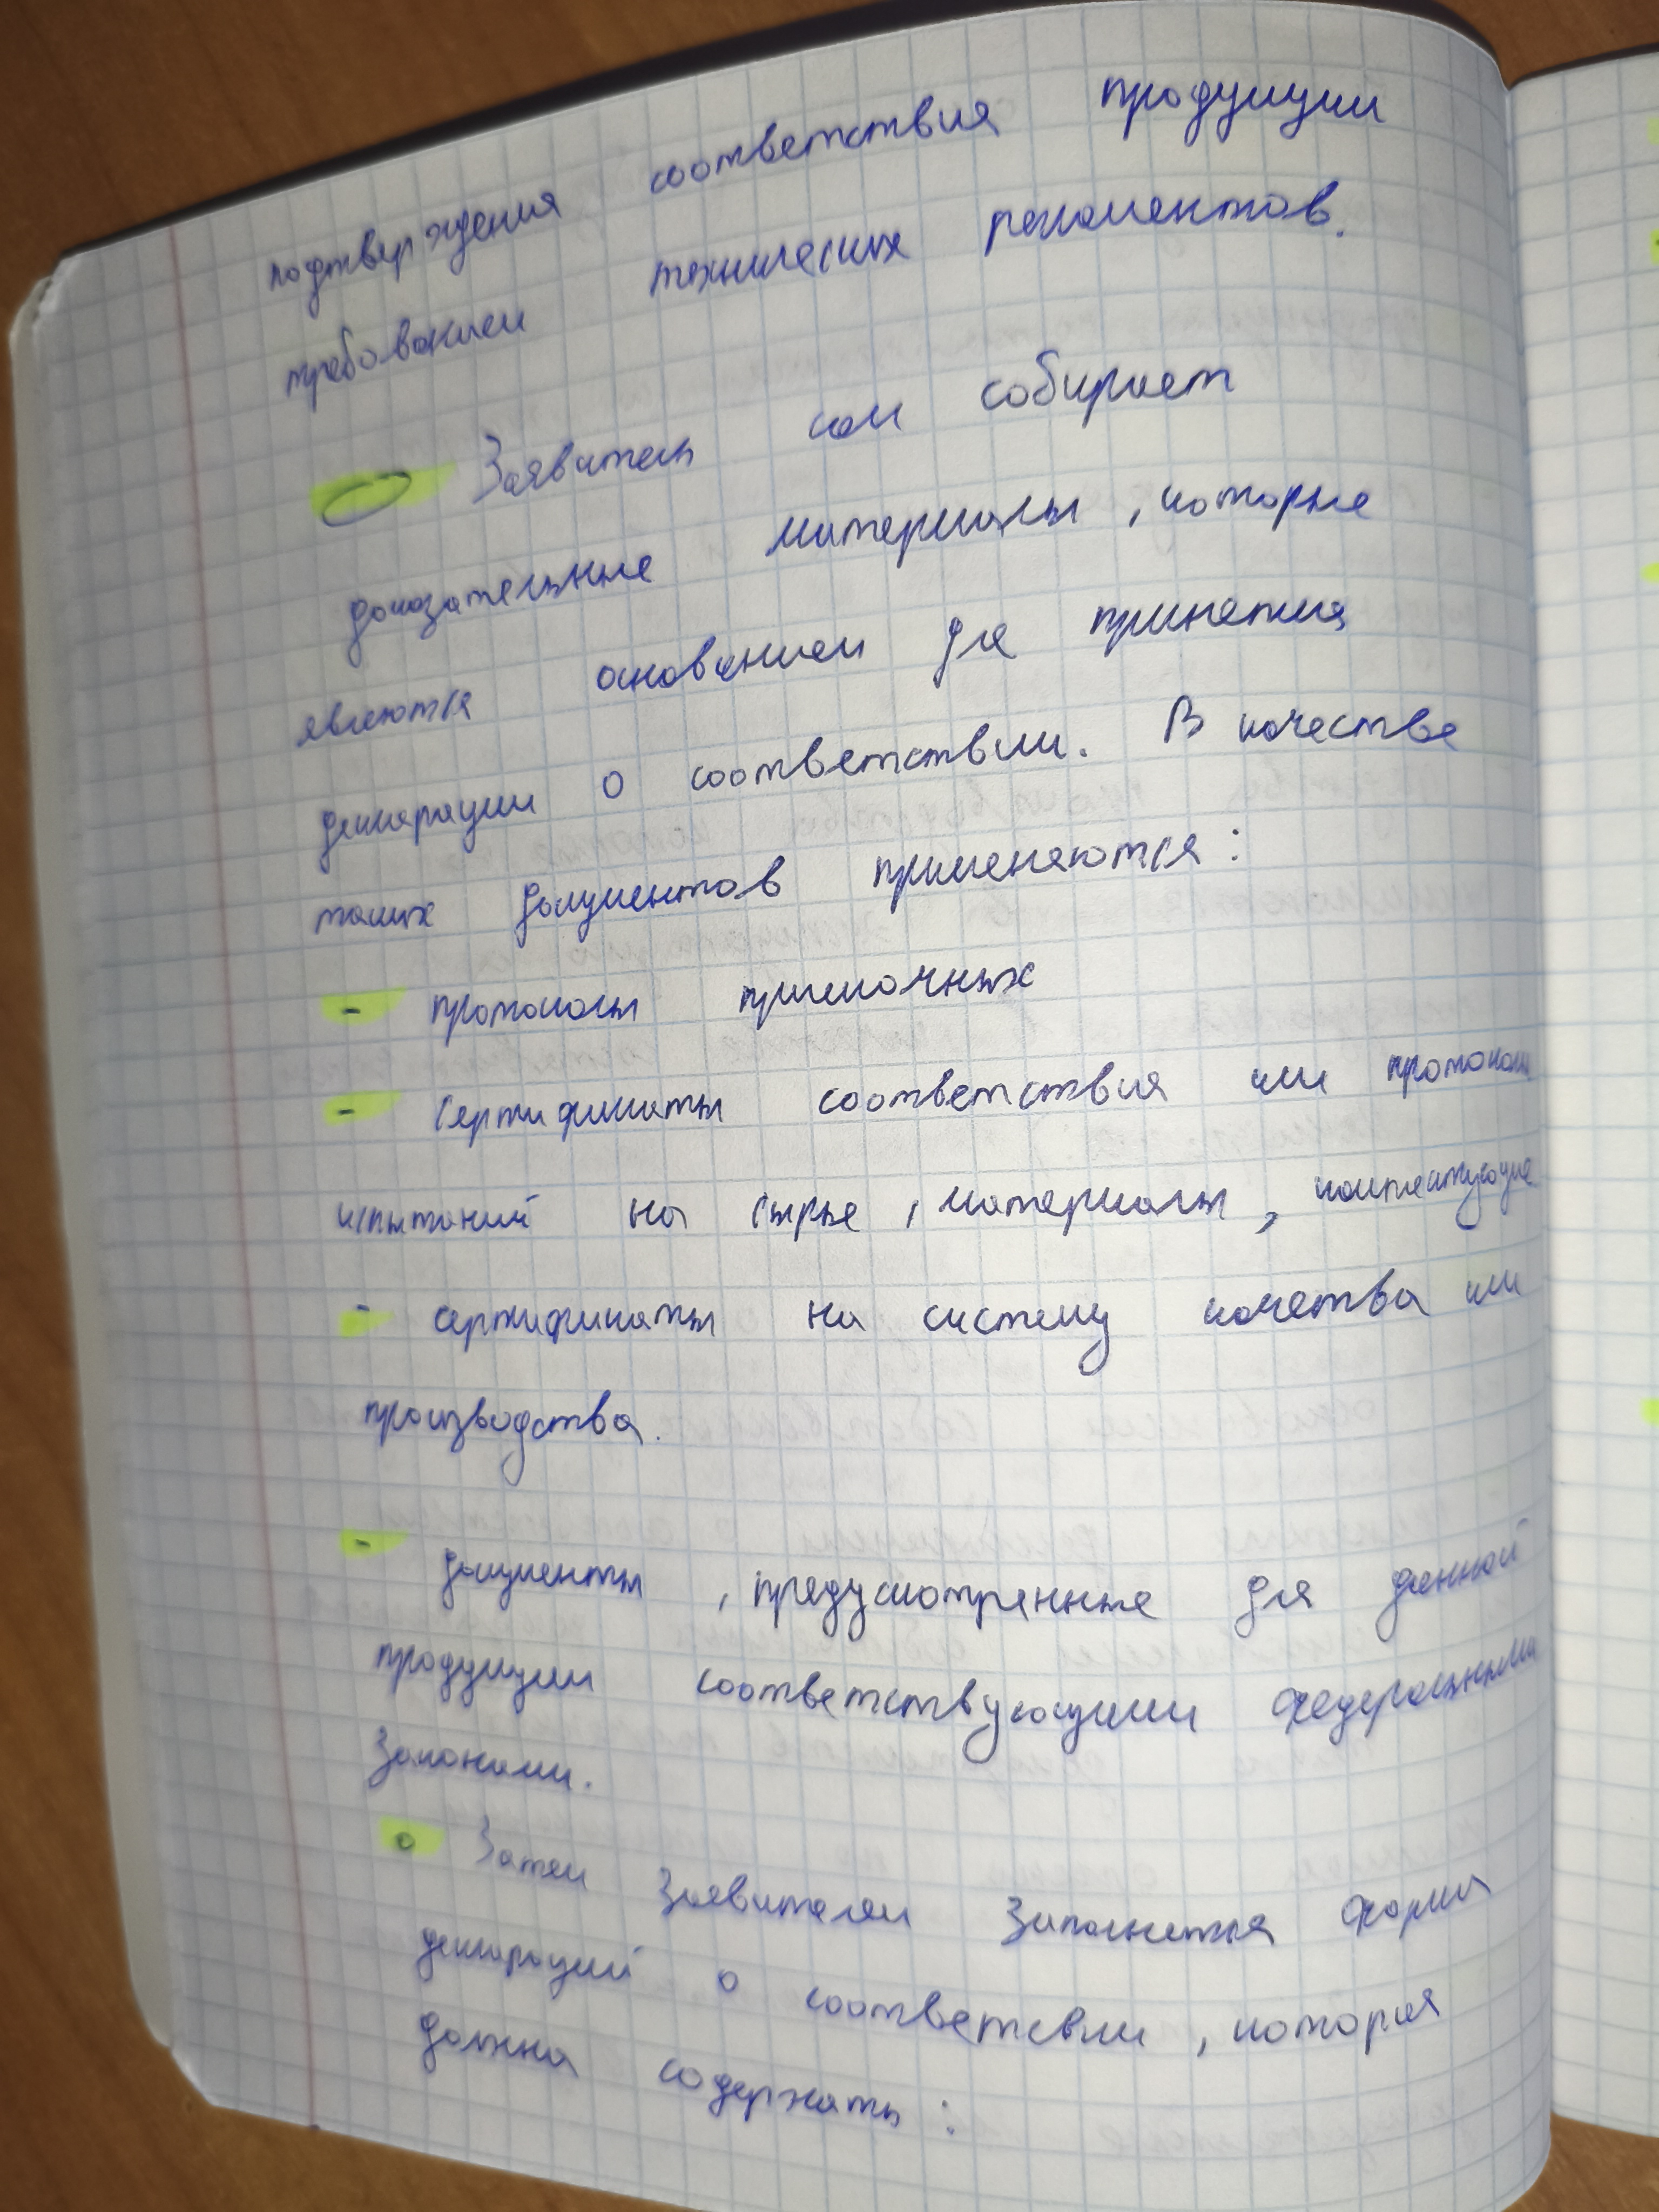 подтверждения соответствия продукции
требованием технических регламентов.
Заявитель сам собирает
доказательные материалы, которые
являются основанием для принятия
декларации о соответствии. В качестве
таких документов применяются:
- протоколы приемочных
- сертификаты соответствия или протоколы
испытаний на сырье, материалы, комплектующие
- сертификаты на систему качества или
производства.
- документы, предусмотренные для данной
продукции соответствующими федеральными
законами.
Затем заявителем заполнется форма
деклараций о соответсвии, которая
должна содержать: